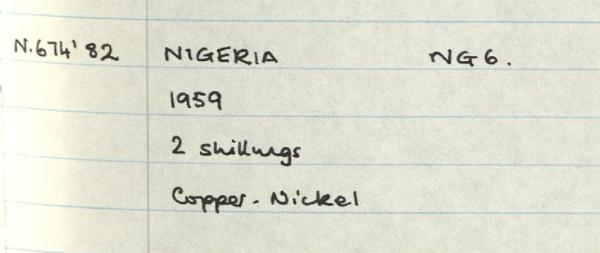 N.674'82 NIGERIA NG6.
1959
2 shillings
Copper-Nickel